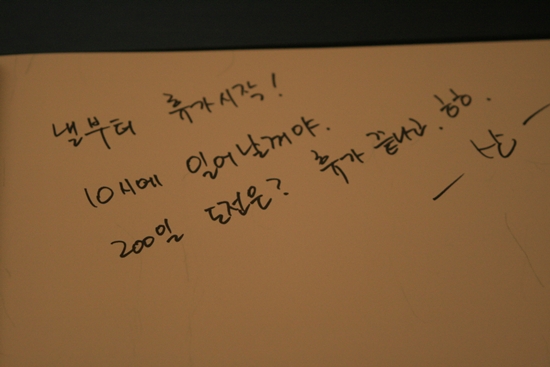 낼부터 휴가시작!
10시에 일어날꺼야.
200일 도전은? 휴가 끝나고. 헝.